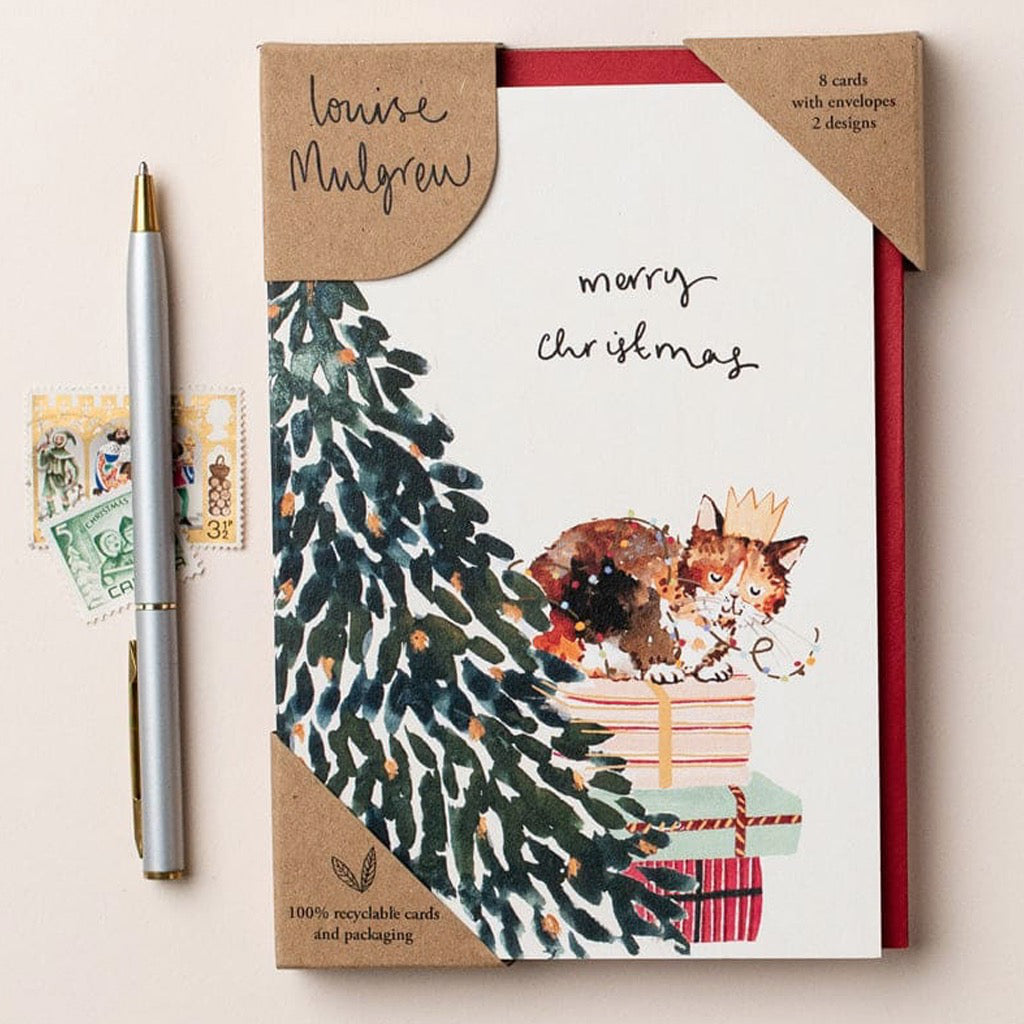 louise
Mulgrew
8 cards
with envelopes
2 designs
merry
christmas
3½P
5
CHRISTMAS
100% recyclable cards
and packaging